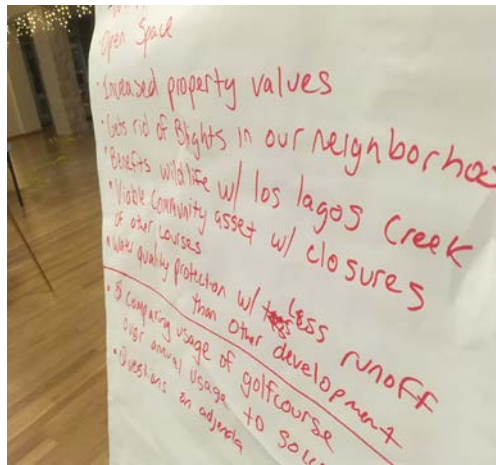 Open Space
· Increased property values
· Gets rid of Blights in our neighborhoo
· Benefits wildlife w/ los lagos Creek
· Viable Community asset w/ closures
of other courses
· Water quality protection w/ less runoff
than other development
· $ Comparing usage of golfcourse
over annual usage to
· Questions on adjenda